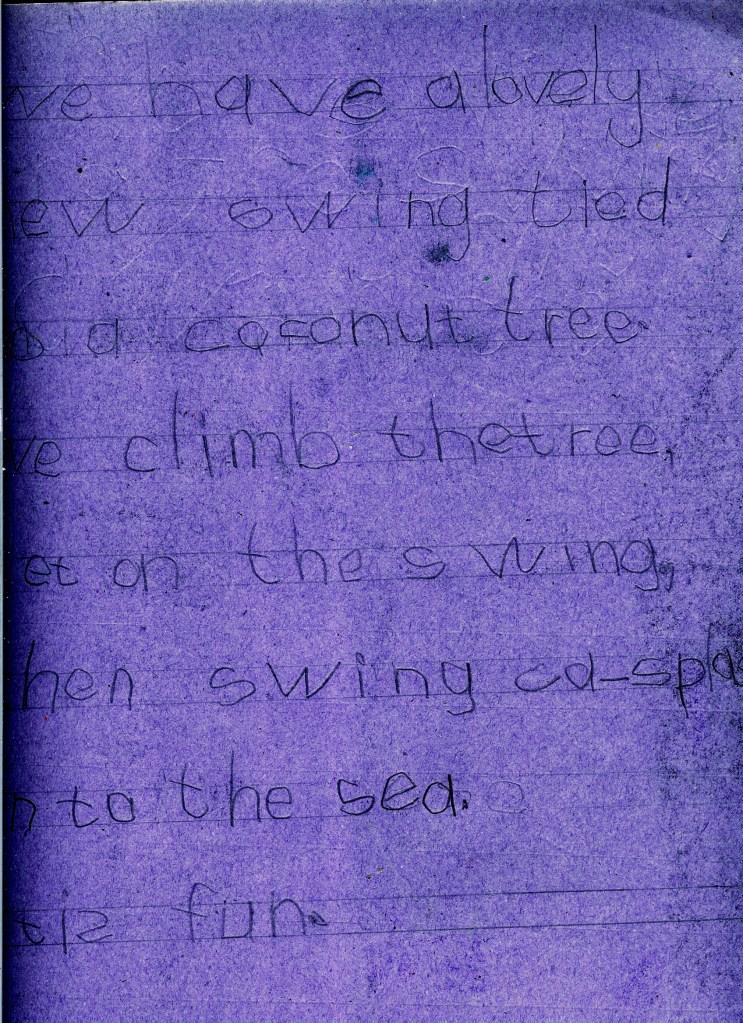 we have a lovely
ew swing tied
o a coconut tree.
we climb the tree,
et on the swing,
hen swing ca-spla
n to the sea.
t is fun.